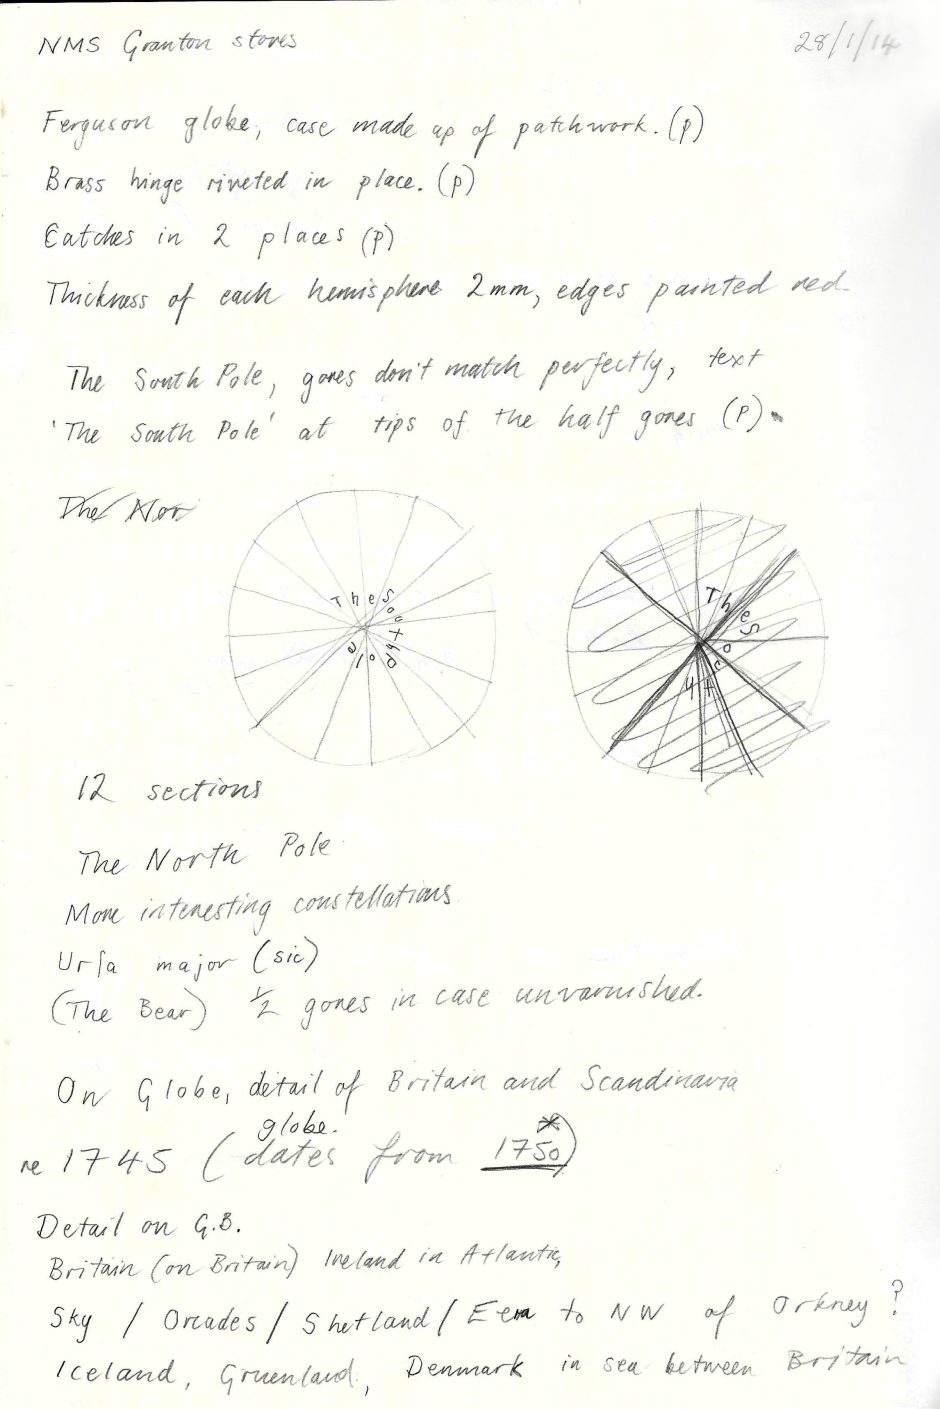 NMS Granton stores 28/1/14
Ferguson globe, case made up of patchwork. (p)
Brass hinge riveted in place. (p)
Catches in 2 places (p)
Thickness of each hemisphere 2mm, edges painted red.
The South Pole, gores don't match perfectly, text
'The South Pole' at tips of the half gores (P)
The Nor
The South Pole
The South
12 sections
The North Pole
More interesting constellations
Urſa major (sic)
(The Bear) 1/2 gores in case unvarnished.
On Globe, detail of Britain and Scandinavia
globe.
re 1745 (dates from 1750*)
Detail on G.B.
Britain (on Britain) Ireland in Atlantic,
Sky / Orcades / Shetland / to NW of Orkney?
Iceland, Gruenland, Denmark in sea between Britain